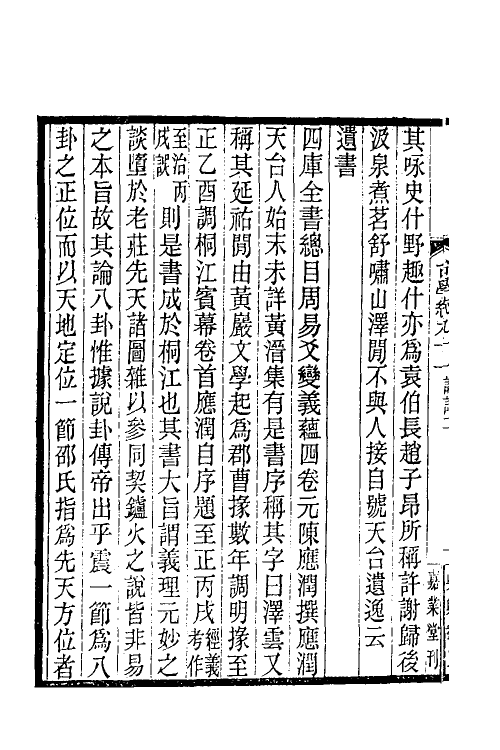 其咏史什野趣什亦爲袁伯長趙子昂所稱許謝歸後
汲泉煮茗舒嘯山澤閒不與人接自號天台遺逸云
遺書
四庫全書總目周易爻變義蘊四卷元陳應潤撰應潤
天台人始末未詳黃溍集有是書序稱其字曰澤雲又
稱其延祐閒由黃巖文學起爲郡曹掾數年調明掾至
正乙酉調桐江賓幕卷首應潤自序題至正丙戌經義考作
至治丙戌誤則是書成於桐江也其書大旨謂義理元妙之
談墮於老莊先天諸圖雜以參同契鑪火之說皆非易
之本旨故其論八卦惟據說卦傳帝出乎震一節爲八
卦之正位而以天地定位一節邵氏指爲先天方位者
嘉業堂刊